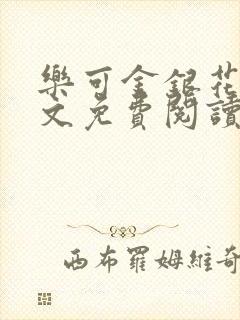 樂可金銀花
文免費閱讀
西布羅姆維奇